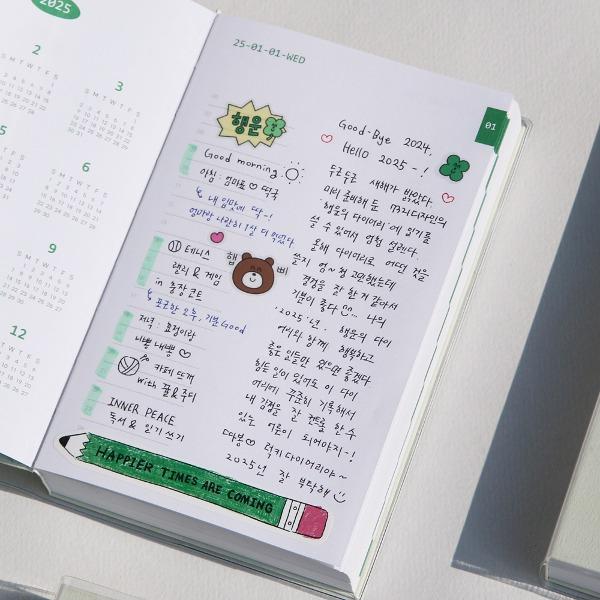 2025
2
S M T W T F S
3
S M T W T F S
5
6
S M T W T F S
9
S M T W T F S
12
S M T W T F S
25-01-01-WED
01
행운
Good morning
아침 : 엄마표♡ 떡국
↳ 내 입맛에 딱-!
엄마랑 나란히 1살 더 먹었다
햅 삐
테니스
랠리 & 게임
in 홍장코트
↳ 포근한 오후, 기분 Good
저녁 : 효정이랑
냐쁠내쁠 ♡
카페 뜨개
with 꿀&주디
INNER PEACE
독서 & 일기 쓰기
HAPPIER TIMES ARE COMING
Good-Bye 2024,
Hello 2025 -!
두근두근 새해가 밝았다.
미리 준비해 둔 디자인의
'행운의 다이어리'에 일기를
쓸 수 있어서 엄청 설렌다.
올해 다이어리로 어떤 것을
쓸지 엄~청 고민했는데
결정을 잘 한 거 같아서
기분이 좋다 나의
2025년. 행운의 다이
어리와 함께 행복하고
좋은 일들만 있으면 좋겠다
힘든 일이 있어도 이 다이
어리에 꾸준히 기록해서
내 감정을 잘 컨트롤 할 수
있는 어른이 되어야지-!
따봉♡ 럭키 다이어리야~
2025년 잘 부탁해